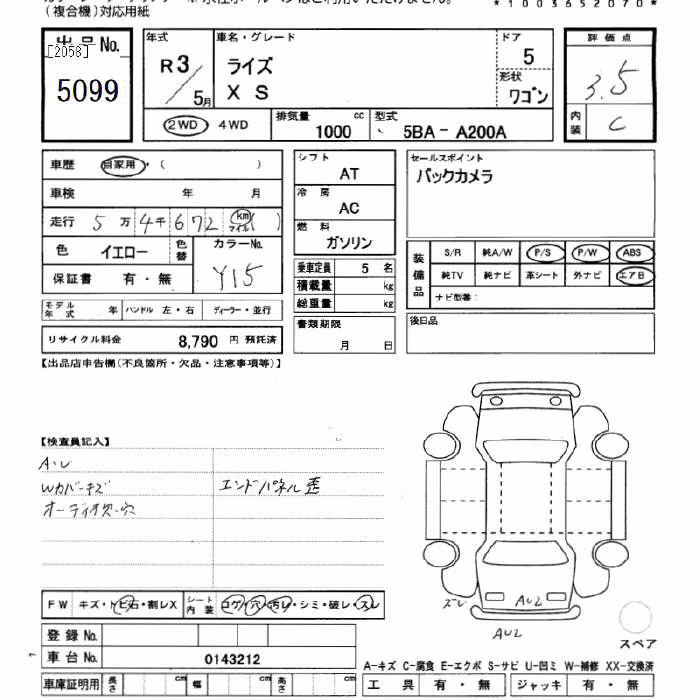 (複合機)対応用紙
*1003652070*
出品No.
[2058]
5099
年式
R3/5月
車名・グレード
ライズ
X S
ドア
5
形状
ワゴン
評価点
3.5
内装
C
2WD・4WD
排気量 cc
1000
型式
5BA- A200A
車歴 自家用・( )
車検 年 月
走行 5万4千672 km マイル( )
色 イエロー 色替
カラーNo.
Y15
保証書 有・無
モデル年式 年
ハンドル 左・右
ディーラー・並行
リサイクル料金 8,790 円 預託済
シフト
AT
冷房
AC
燃料
ガソリン
乗車定員 5 名
積載量 kg
総重量 kg
書類期限
月 日
セールスポイント
バックカメラ
装備品
S/R 純A/W P/S P/W ABS
純TV 純ナビ 革シート 外ナビ エアB
ナビ型番:
後日品
【出品店申告欄(不良箇所・欠品・注意事項等)】
【検査員記入】
A・U
Wカバーキズ
オーディオ欠・穴
エンドパネル歪
FW キズ・トビ石・割レX
シート内装 コゲ・穴・汚レ・シミ・破レ・スレ
登録No.
車台No. 0143212
車庫証明用 長さ cm 幅 cm 高さ cm
スレ
AU2
AU2
スペア
A-キズ C-腐食 E-エクボ S-サビ U-凹ミ W-補修 XX-交換済
工具 有・無
ジャッキ 有・無